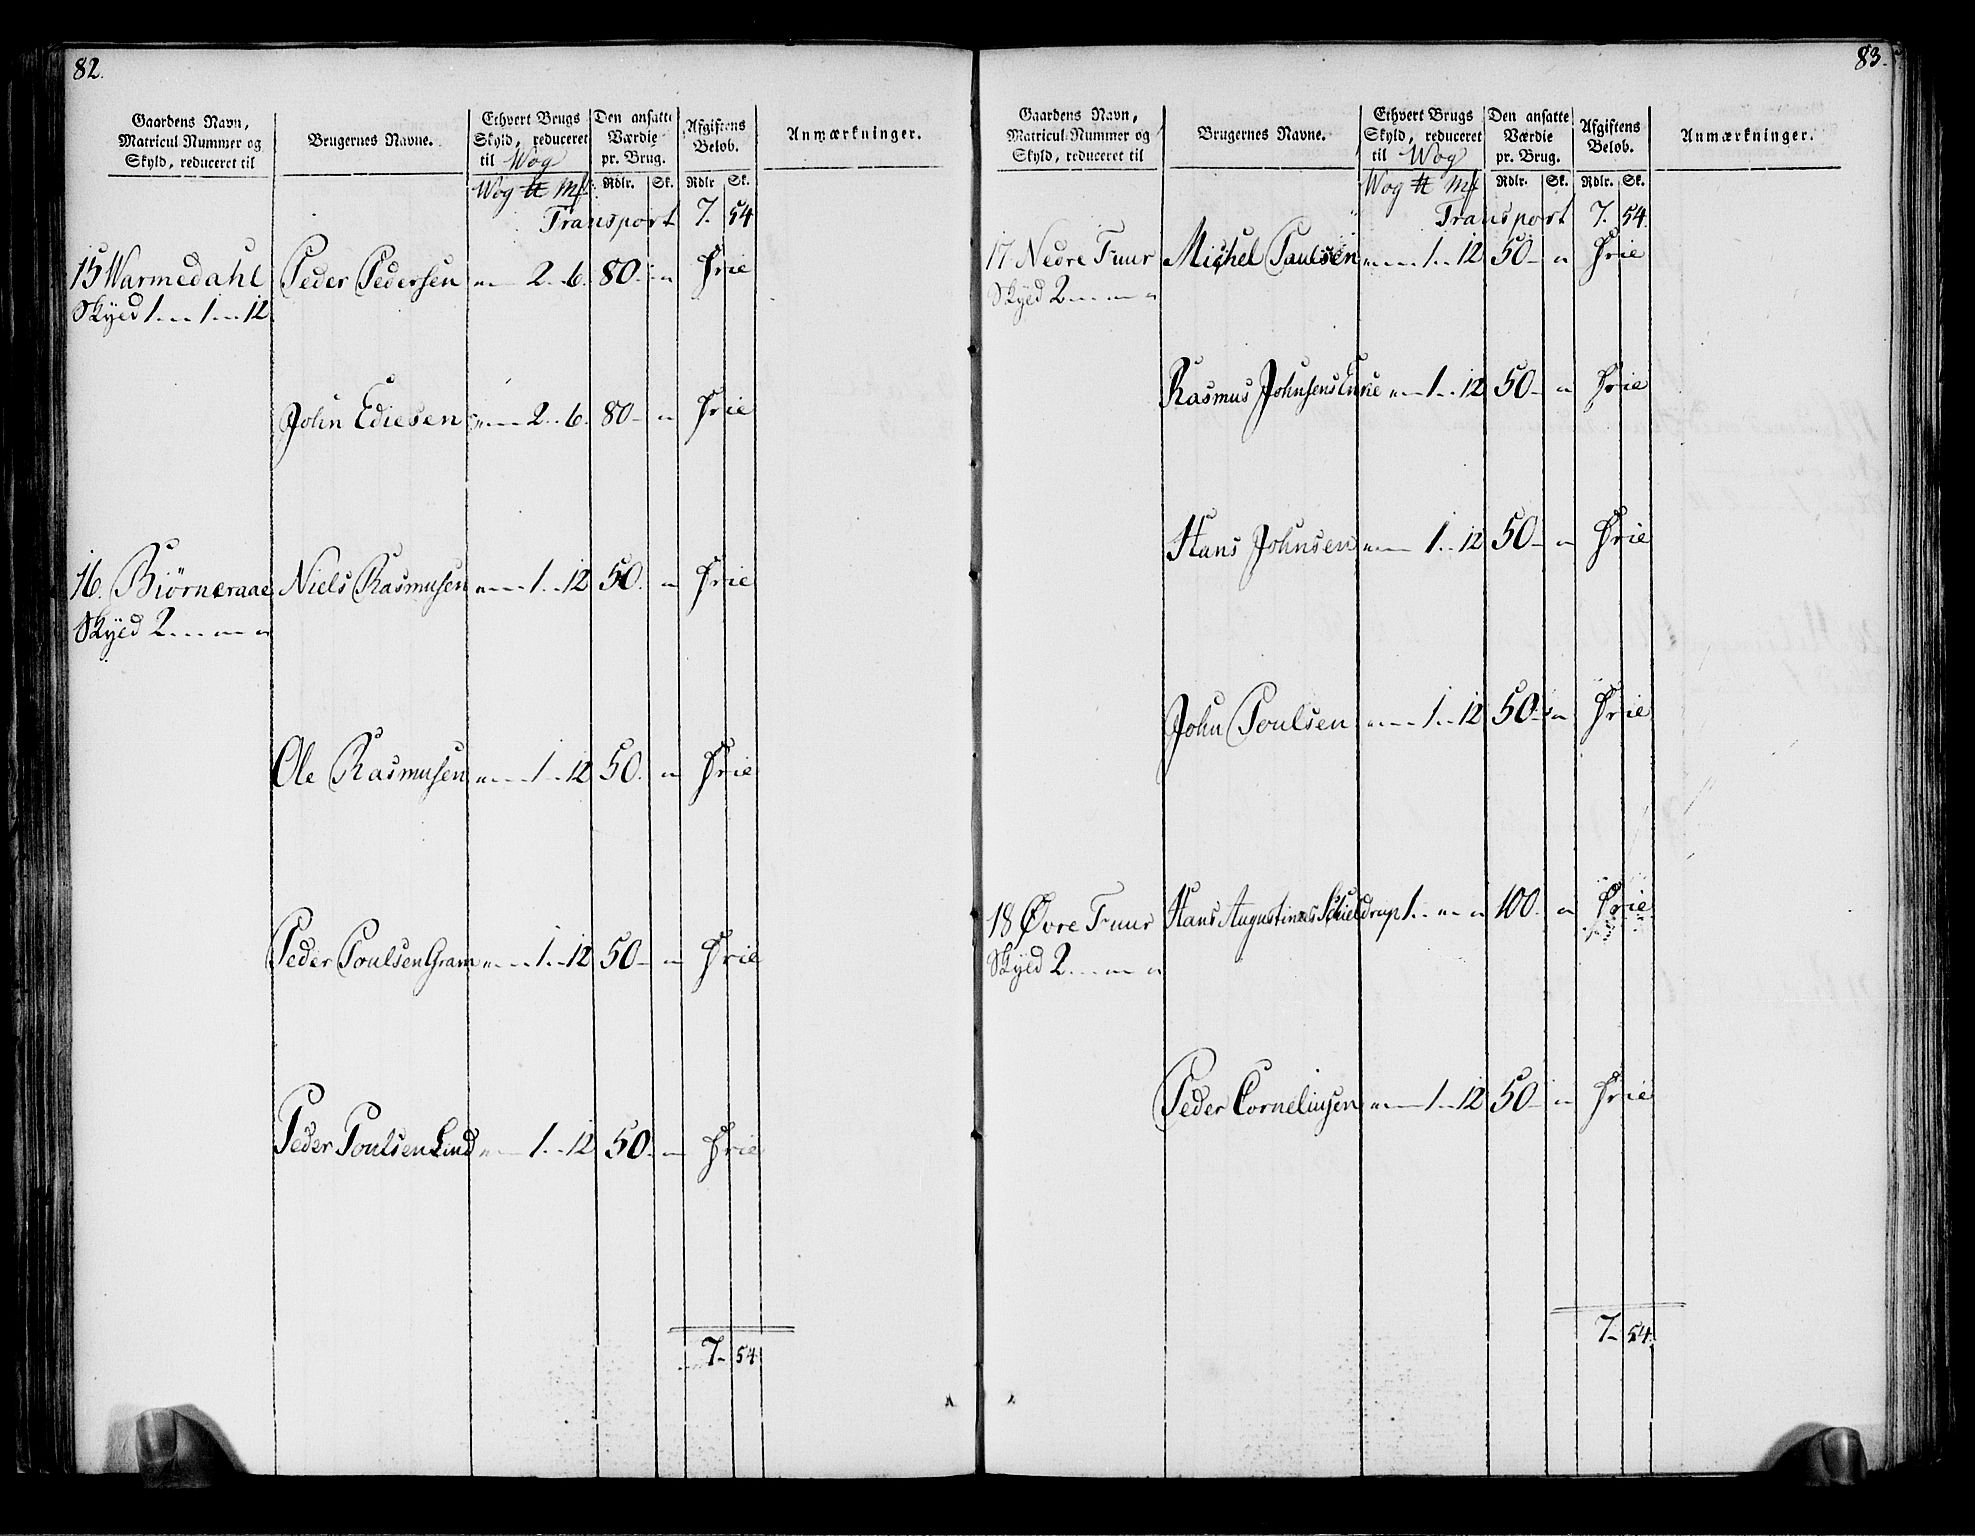 82.
Gaardens Navn, Matricul Nummer og Skyld, reduceret til | Brugernes Navne. | Ethvert Brugs Skyld, reduceret til Wog | Den ansatte Værdie pr. Brug. | Afgiftens Beløb. | Anmærkninger.
Wog ℔ Mf: | Rdlr. | Sk. | Rdlr | Sk.
Transport 7. 54
15 Warmedahl Peder Pedersen „ 2 . . 6. 80. „ Frie
Skyld 1 . . . 1 . . . 12.
John Ediesen „ 2 . . 6. 80 „ Frie
16. Biörneraae Niels Rasmusen „ 1 . . 12 50. „ Frie
Skyld 2 . . . „ „
Ole Rasmusen „ 1 . . 12 50. „ Frie
Peder Poulsen Gram „ 1 . . 12 50 „ Frie
Peder Poulsen Lind „ 1 . . 12 50. „ Frie
7 54
83.
Gaardens Navn, Matricul-Nummer og Skyld, reduceret til | Brugernes Navne. | Ethvert Brugs Skyld, reduceret til Wog | Den ansatte Værdie pr. Brug. | Afgiftens Beløb. | Anmærkninger.
Wog ℔ Mf | Rdlr. | Sk. | Rdlr. | Sk.
Transport 7. 54
17 Nedre Fuur Michel Paulsen „ 1 . . 12 50 „ Frie
Skyld 2 . . . „ „
Rasmus Johnsens Enke „ 1 . . 12 50 „ Frie
Hans Johnsen „ 1 . . 12 50 „ Frie
John Poulsen „ 1 . . 12 50 „ Frie
18 Øvre Fuur Hans Augustinus Schieldrup 1 . . „ „ 100. „ Frie
Skyld 2 . . . „ „
Peder Corneliusen „ 1 . . 12 50 „ Frie
7 54.